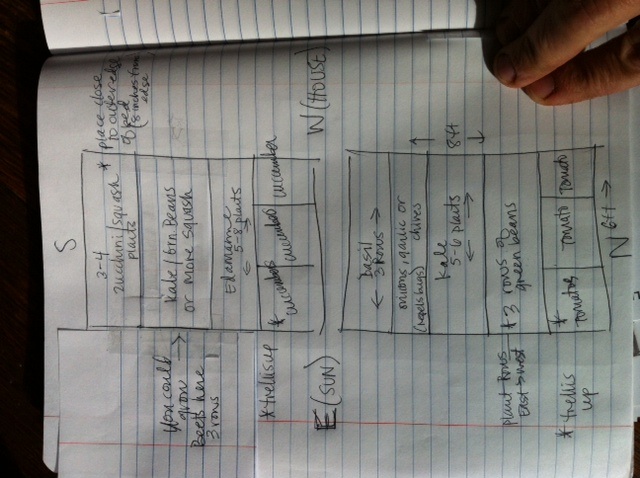 S
3-4
zucchini/squash
plants
* place close
to outer edge
of bed
(8 inches from
edge
kale/brn Beans
or more squash
You could
grow
Beets here
3 rows
→
Edamame
5-8 plants
← →
* cucumber
cucumber
cucumber
* trellis up
E (SUN)
W (HOUSE)
Basil
3 rows
← →
onions, garlic or
chives
Kale
5-6 plants
← →
← 8ft →
* 3 rows of
green beans
plant rows
East → west
* tomatoes
tomato
tomato
* trellis
up
N
6ft →